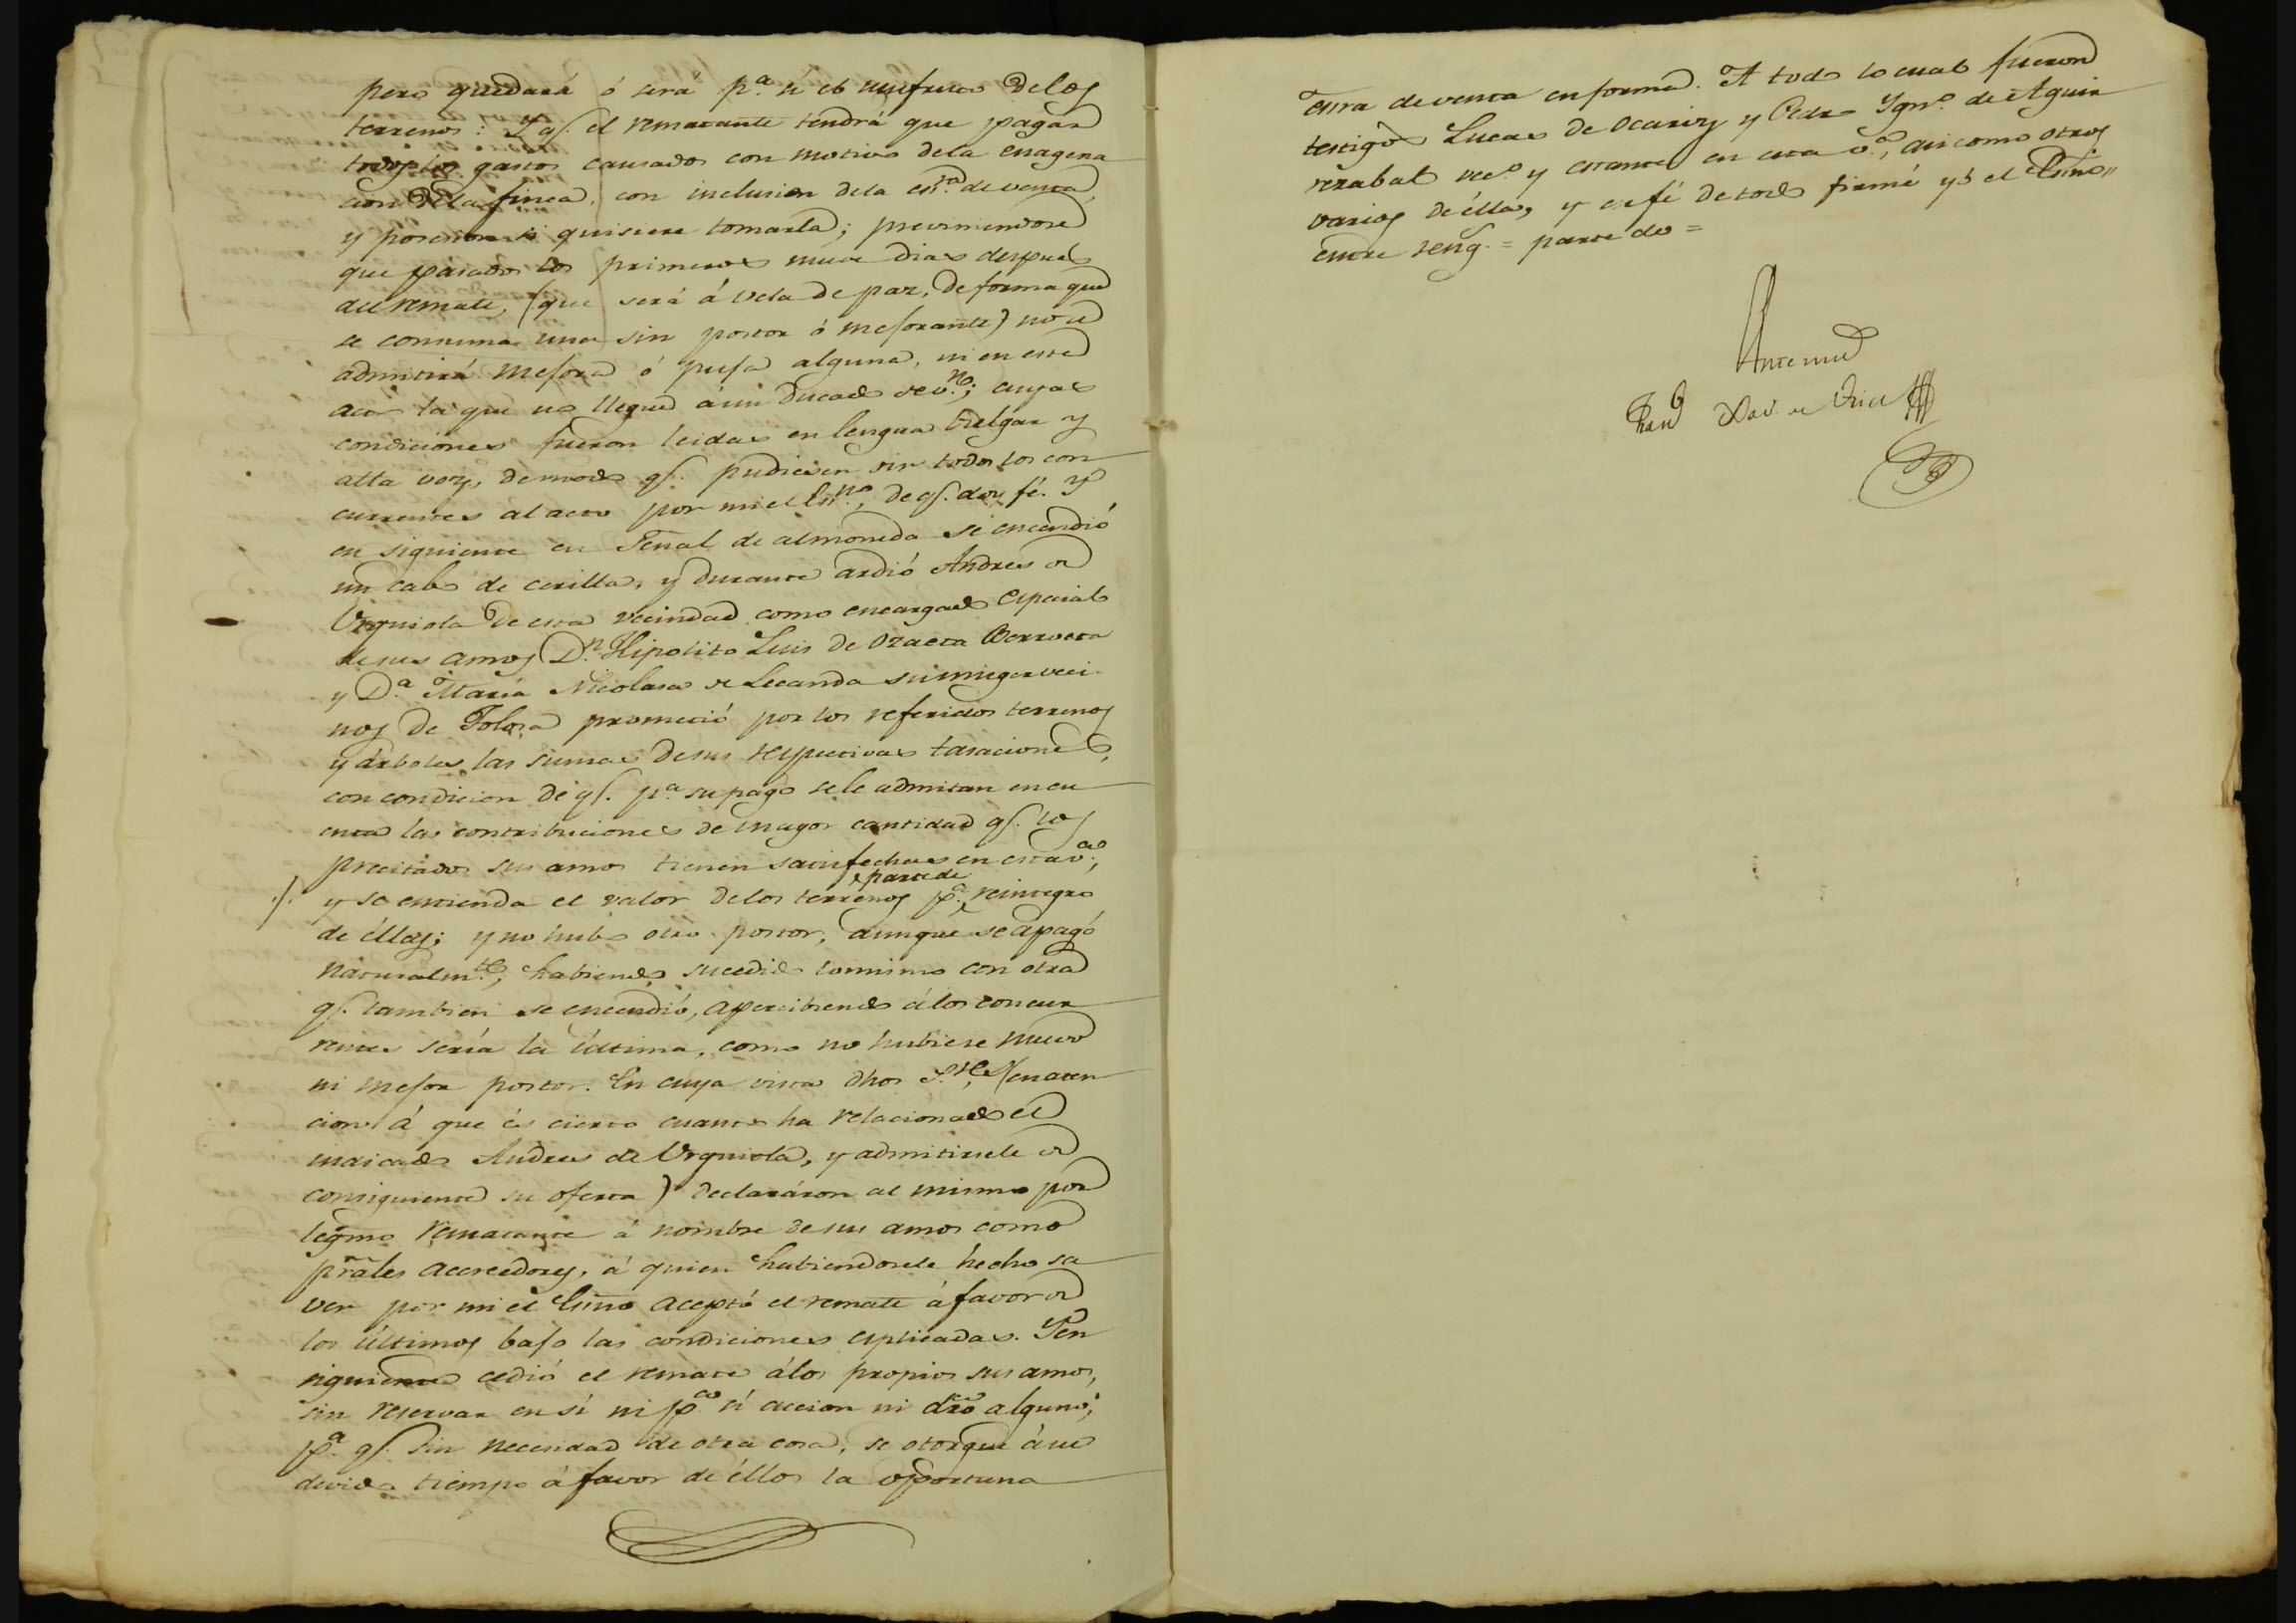 pero quedará ó será p.ª sí el usufruto de los
terrenos: Y q.ᵉ el rematante tendrá que pagar
todos los gastos causados con motivo de la enagena
cion de la finca, con inclusion de la es.ʳᵃ de venta,
y posesion si quisiere tomarla; previniendose
que pasados los primeros nueve dias despues
del remate, (que será á vela de par, de forma que
se consuma una sin postor ó mejorante) no se
admitirá mejora ó puja alguna, ni en este
acto la que no llegue á un Ducado de v.ⁿ; cuyas
condiciones fueron leidas en lengua vulgar y
alta voz, de modo q.ᵉ pudiesen oir todos los con
currentes al acto por mi el Es.ⁿᵒ, de q.ᵉ doy fé. Y
en siguiente en señal de almoneda se encendió
un cabo de cerilla, y durante ardió Andres de
Urquiola de esta vecindad como encargado especial
de sus amos D.ⁿ Hipolito Luis de Ozaeta Berroeta
y D.ª María Nicolasa de Lecanda su muger veci
nos de Tolosa prometió por los referidos terrenos
y árboles las sumas de sus respectivas tasaciones,
con condicion de q.ᵉ p.ª su pago se le admitan en cu
enta las contribuciones de mayor cantidad q.ᵉ los
precitados sus amos tienen satisfechas en esta v.ª,
parte de
y se entienda el valor de los terrenos p.ª reintegro
de éllas; y no hubo otro postor, aunque se apagó
naturalm.ᵗᵉ, habiendo sucedido lo mismo con otra
q.ᵉ tambien se encendió, apercibiendo á los concur
rentes sería la última, como no hubiese nuevo
ni mejor postor. En cuya vista dhos S.ʳᵉˢ (en aten
cion á que és cierto cuanto ha relacionado el
indicado Andres de Urquiola, y admitirsele de
consiguiente su oferta) declaráron al mismo por
legmo rematante á nombre de sus amos como
prāles acreedores, á quien habiendosele hecho sa
ver por mi el Esno aceptó el remate á favor de
los últimos bajo las condiciones esplicadas. Y en
siguiente cedió el remate á los propios sus amos,
sin reservar en sí ni p.ª sí accion ni dro alguno;
p.ª q.ᵉ sin necesidad de otra cosa, se otorgue á su
devido tiempo á favor de éllos la oportuna
esrra de venta en forma. A todo lo cual fueron
testigos Lucas de Ocariz y Pedro Ygn.º de Aguir
rezabal vec.º y estante en esta v.ª, asi como otros
varios de élla, y en fé de todo firmé yó el Esno"
entre reng.ˢ = parte de =
Ante mi
Xav.ʳ de